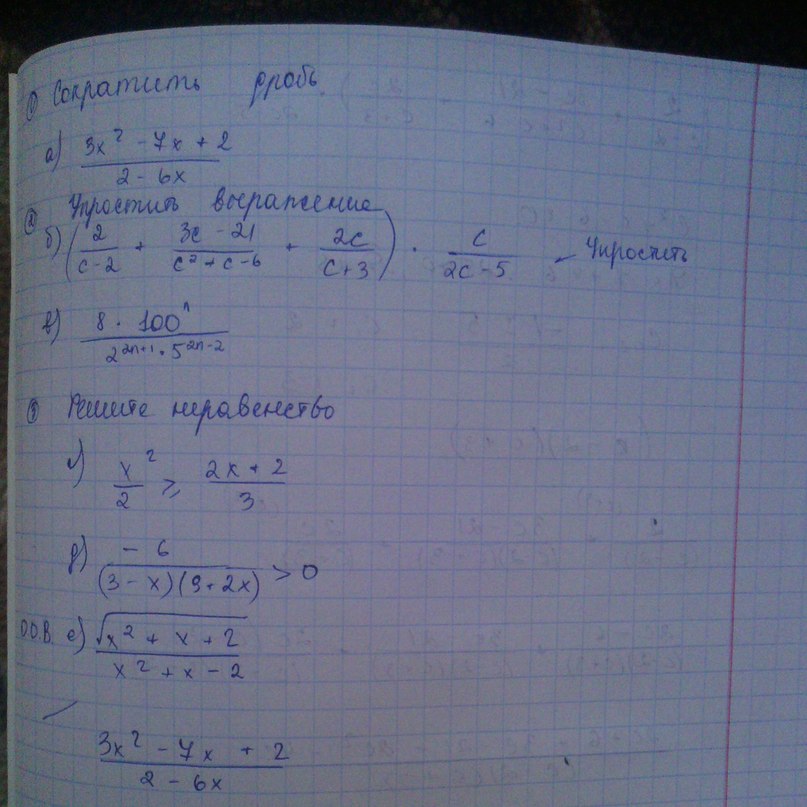 ① Сократить дробь.
а) (3x² - 7x + 2) / (2 - 6x)
② Упростить выражение
б) (2/(c-2) + (3c - 21)/(c² + c - 6) + 2c/(c+3)) · c/(2c-5) - Упростить
в) (8 · 100ⁿ) / (2²ⁿ⁺¹ · 5²ⁿ⁻²)
③ Решите неравенство
г) x²/2 ≥ (2x + 2)/3
д) -6 / ((3 - x)(9 + 2x)) > 0
О.О.В. е) √(x² + x + 2) / (x² + x - 2)
(3x² - 7x + 2) / (2 - 6x)